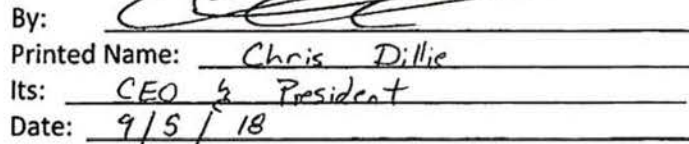 By:
Printed Name: Chris Dillie
Its: CEO & President
Date: 9/5/18